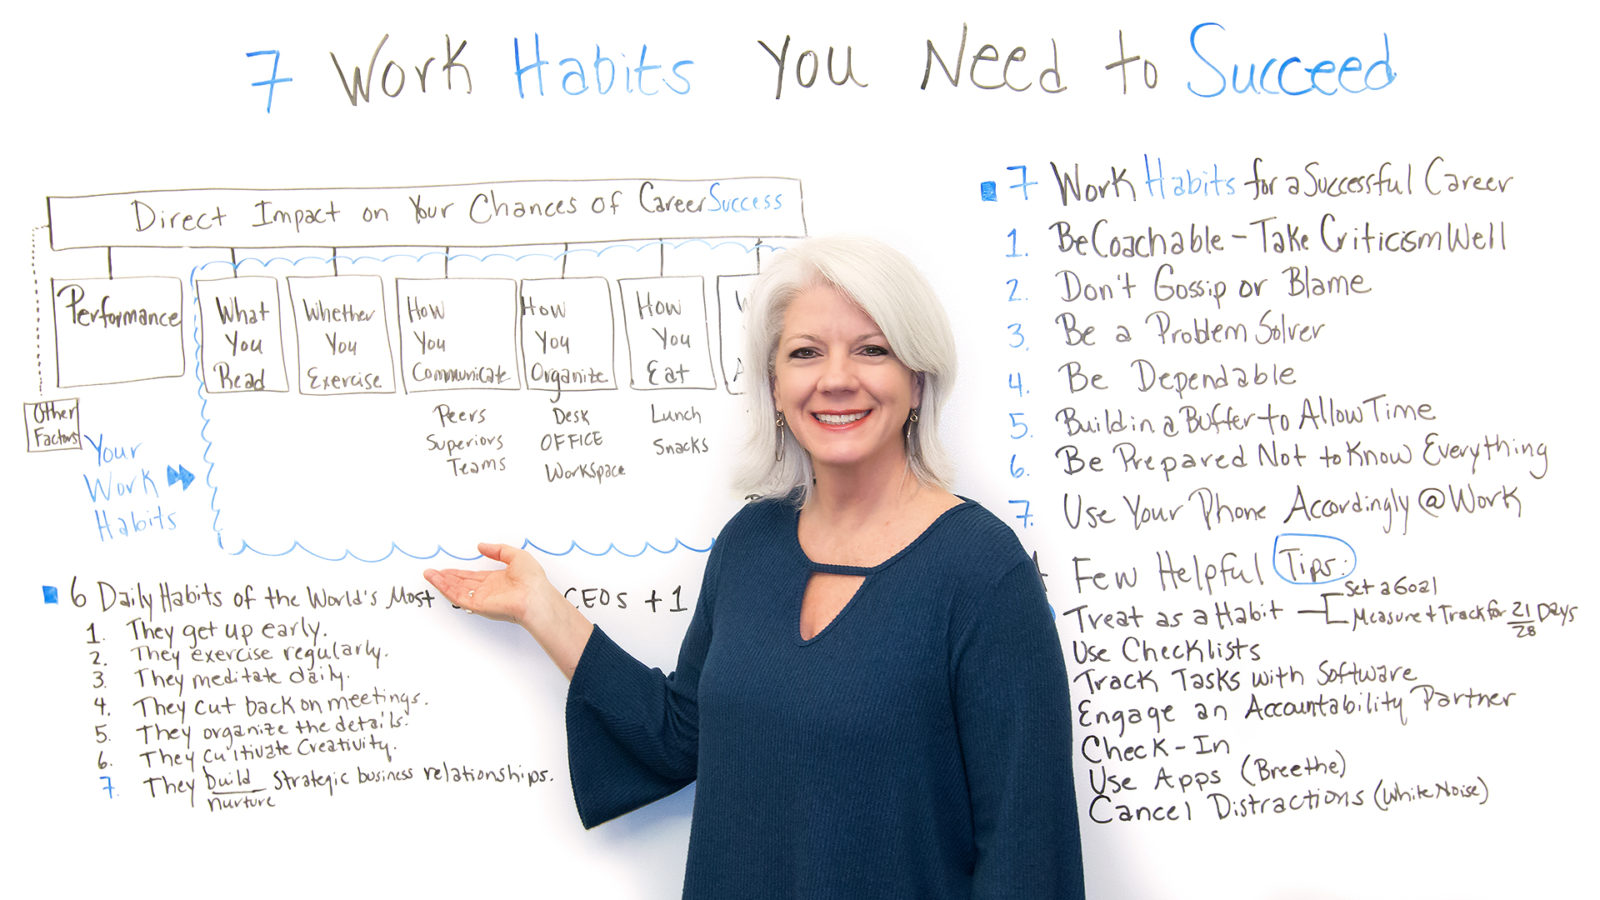 7 Work Habits You Need to Succeed
Direct Impact on Your Chances of Career Success
Performance
What
You
Read
Whether
You
Exercise
How
You
Communicate
Peers
Superiors
Teams
How
You
Organize
Desk
OFFICE
Workspace
How
You
Eat
Lunch
Snacks
Other
Factors
Your
Work
Habits
6 Daily Habits of the World's Most CEOs +1
1. They get up early.
2. They exercise regularly.
3. They meditate daily.
4. They cut back on meetings.
5. They organize the details.
6. They cultivate creativity.
7. They build strategic business relationships.
nurture
7 Work Habits for a Successful Career
1. Be Coachable - Take Criticism Well
2. Don't Gossip or Blame
3. Be a Problem Solver
4. Be Dependable
5. Build in a Buffer to Allow Time
6. Be Prepared Not to Know Everything
7. Use Your Phone Accordingly @ Work
Few Helpful Tips:
Treat as a Habit
Set a Goal
Measure + Track for 21 Days
28
Use Checklists
Track Tasks with Software
Engage an Accountability Partner
Check-In
Use Apps (Breethe)
Cancel Distractions (White Noise)